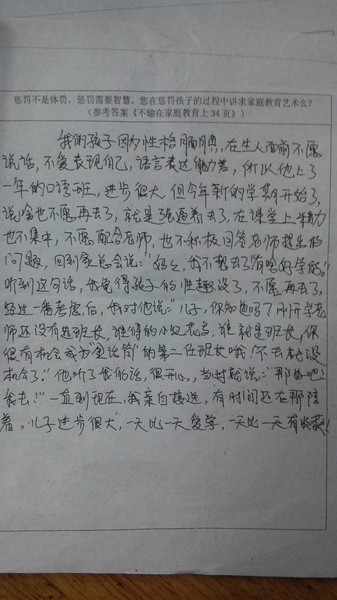 惩罚不是体罚，惩罚需要智慧，您在惩罚孩子的过程中讲求家庭教育艺术么？
（参考答案《不输在家庭教育上34页》）
我的孩子因为性格腼腆，在生人面前不愿
说话，不爱表现自己，语言表达能力差，所以他上了
一年的口语班，进步很大。但今年新的学期开始了，
说啥也不愿再去了，就是强逼着去了，在课堂上精力
也不集中，不愿配合老师，也不积极回答老师提出的
问题，回到家总会说：“妈妈，我不想去了，有啥好学的。”
听到这句话，我觉得孩子的性趣没了，不愿再去了，
经过一番考虑后，我对他说：“儿子，你知道吗？刚开学老
师还没有选班长，谁得的小红花多，谁就是班长，你
很有机会成为“会说爷”的第二任班长哦，不去就没
机会了。”他听了我的话，很开心，当时就说：“那好吧！
我去！”一直到现在，我亲自接送，有时间还在那陪
着，儿子进步很大，一天比一天爱学，一天比一天有收获！